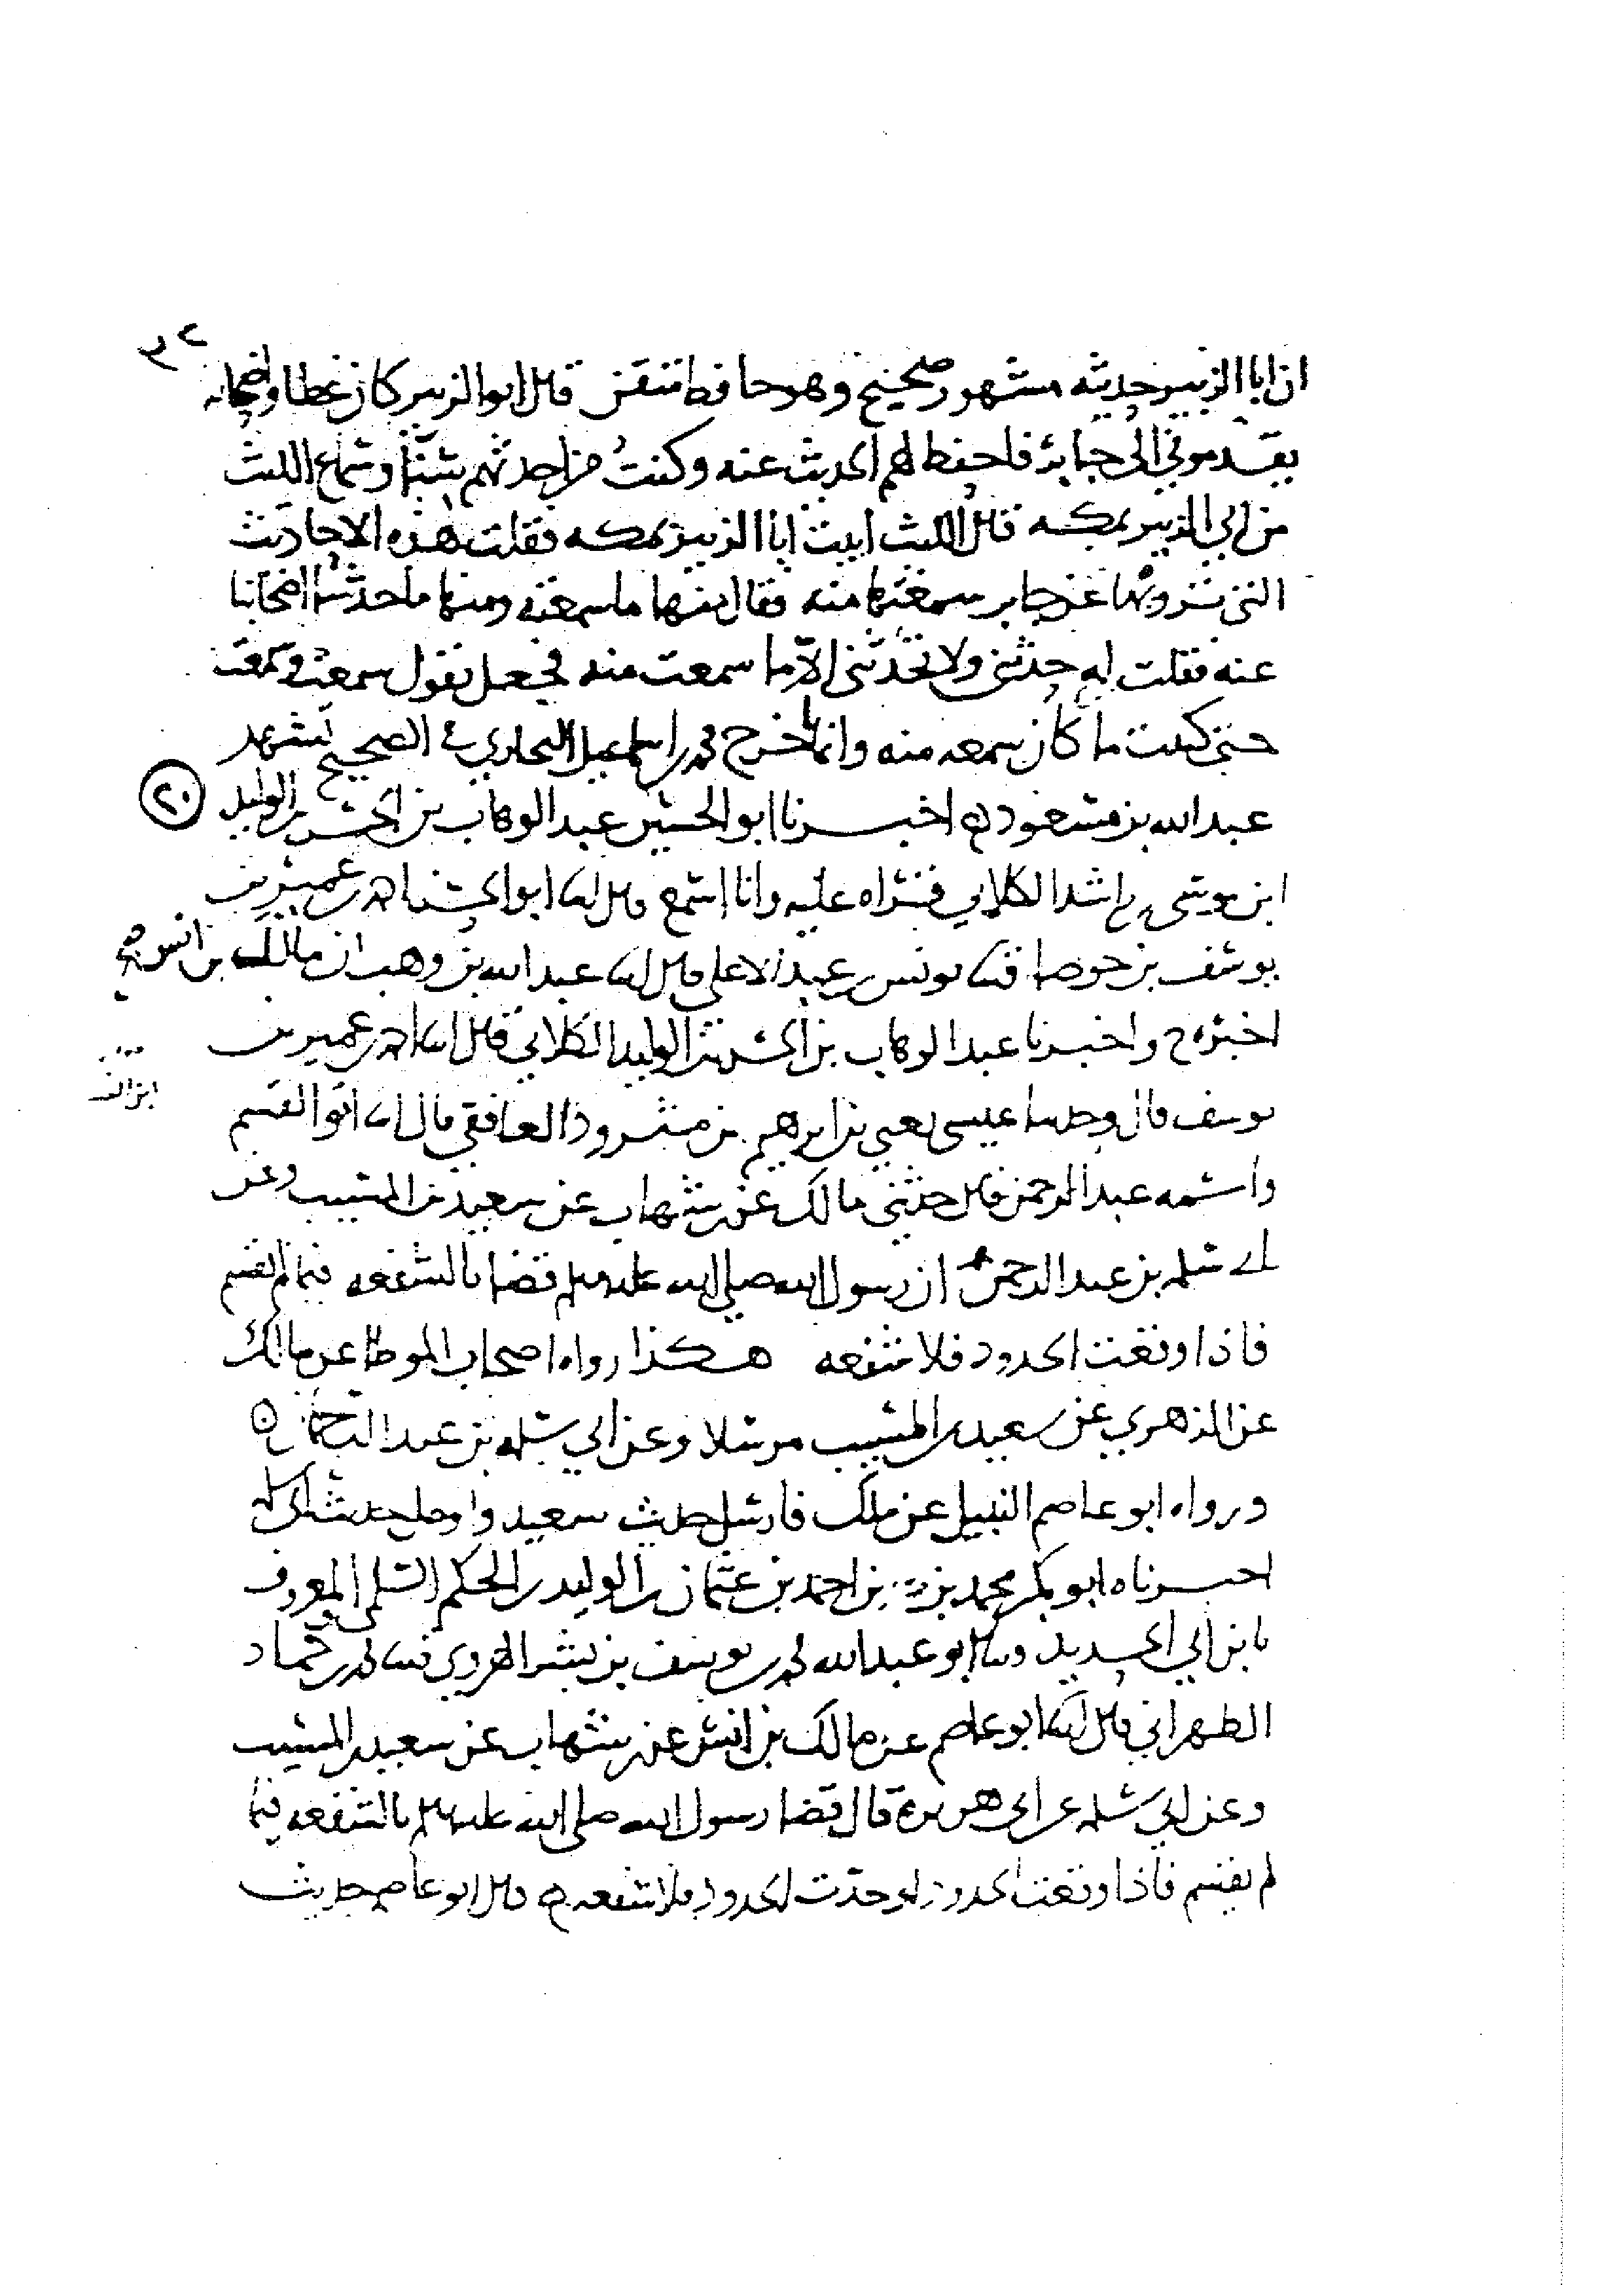 ان ابا الزبير حديثه مشهور صحيح وهو حافظ متقن قال ابو الزبير كان عطا واصحابه
يقدموني الى جابر فاحفظ لهم الحديث عنه وكنت من احدثهم سنا وسماع الليث
من ابي الزبير بمكه قال الليث اتيت ابا الزبير بمكه فقلت هذه الاحاديث
التي ترويها عن جابر سمعتها منه فقال منها ما سمعته ومنها ما حدثنا اصحابنا
عنه فقلت له حدثني ولا تحدثني الا ما سمعت منه فجعل يقول سمعت وسمعت
حتى كتبت ما كان سمعه منه وانما خرج محمد بن اسماعيل البخاري في الصحيح تشهد
عبد الله بن مسعود اخبرنا ابو الحسين عبد الوهاب بن الحسن بن الوليد
٢٠
ابن موسى بن راشد الكلابي قراه عليه وانا اسمع قال ابنا ابو الحسن احمد بن عمير بن
يوسف بن جوصا قثنا يونس بن عبد الاعلى قال ابنا عبد الله بن وهب ان مالك بن انس
اخبره ح واخبرنا عبد الوهاب بن الحسن بن الوليد الكلابي قال ابنا احمد بن عمير بن
يوسف قال وحدثنا عيسى يعني بن ابرهيم بن مثرود الغافقي قال ابنا ابو القسم
واسمه عبد الرحمن قال حدثني مالك عن بن شهاب عن سعيد بن المسيب وعن
ابي سلمه بن عبد الرحمن ان رسول الله صلى الله عليه وسلم قضا بالشفعه فيما لم يقسم
فاذا وقعت الحدود فلا شفعه هكذا رواه اصحاب الموطا عن مالك
عن الزهري عن سعيد بن المسيب مرسلا وعن ابي سلمه بن عبد الرحمن
ورواه ابو عاصم النبيل عن ملك فارسل حديث سعيد واوصل حديث ابي سلمه
اخبرناه ابو بكر محمد بن احمد بن عثمان بن الوليد بن الحكم السلمي المعروف
بابن ابي الحديد قثنا ابو عبد الله محمد بن يوسف بن بشر الهروي قثنا محمد بن حماد
الطهراني قال ابنا ابو عاصم عن مالك بن انس عن بن شهاب عن سعيد بن المسيب
وعن ابي سلمه عن ابي هريرة قال قضا رسول الله صلى الله عليه وسلم بالشفعه فيما
لم يقسم فاذا وقعت الحدود او حدت الحدود فلا شفعه قال ابو عاصم حديث